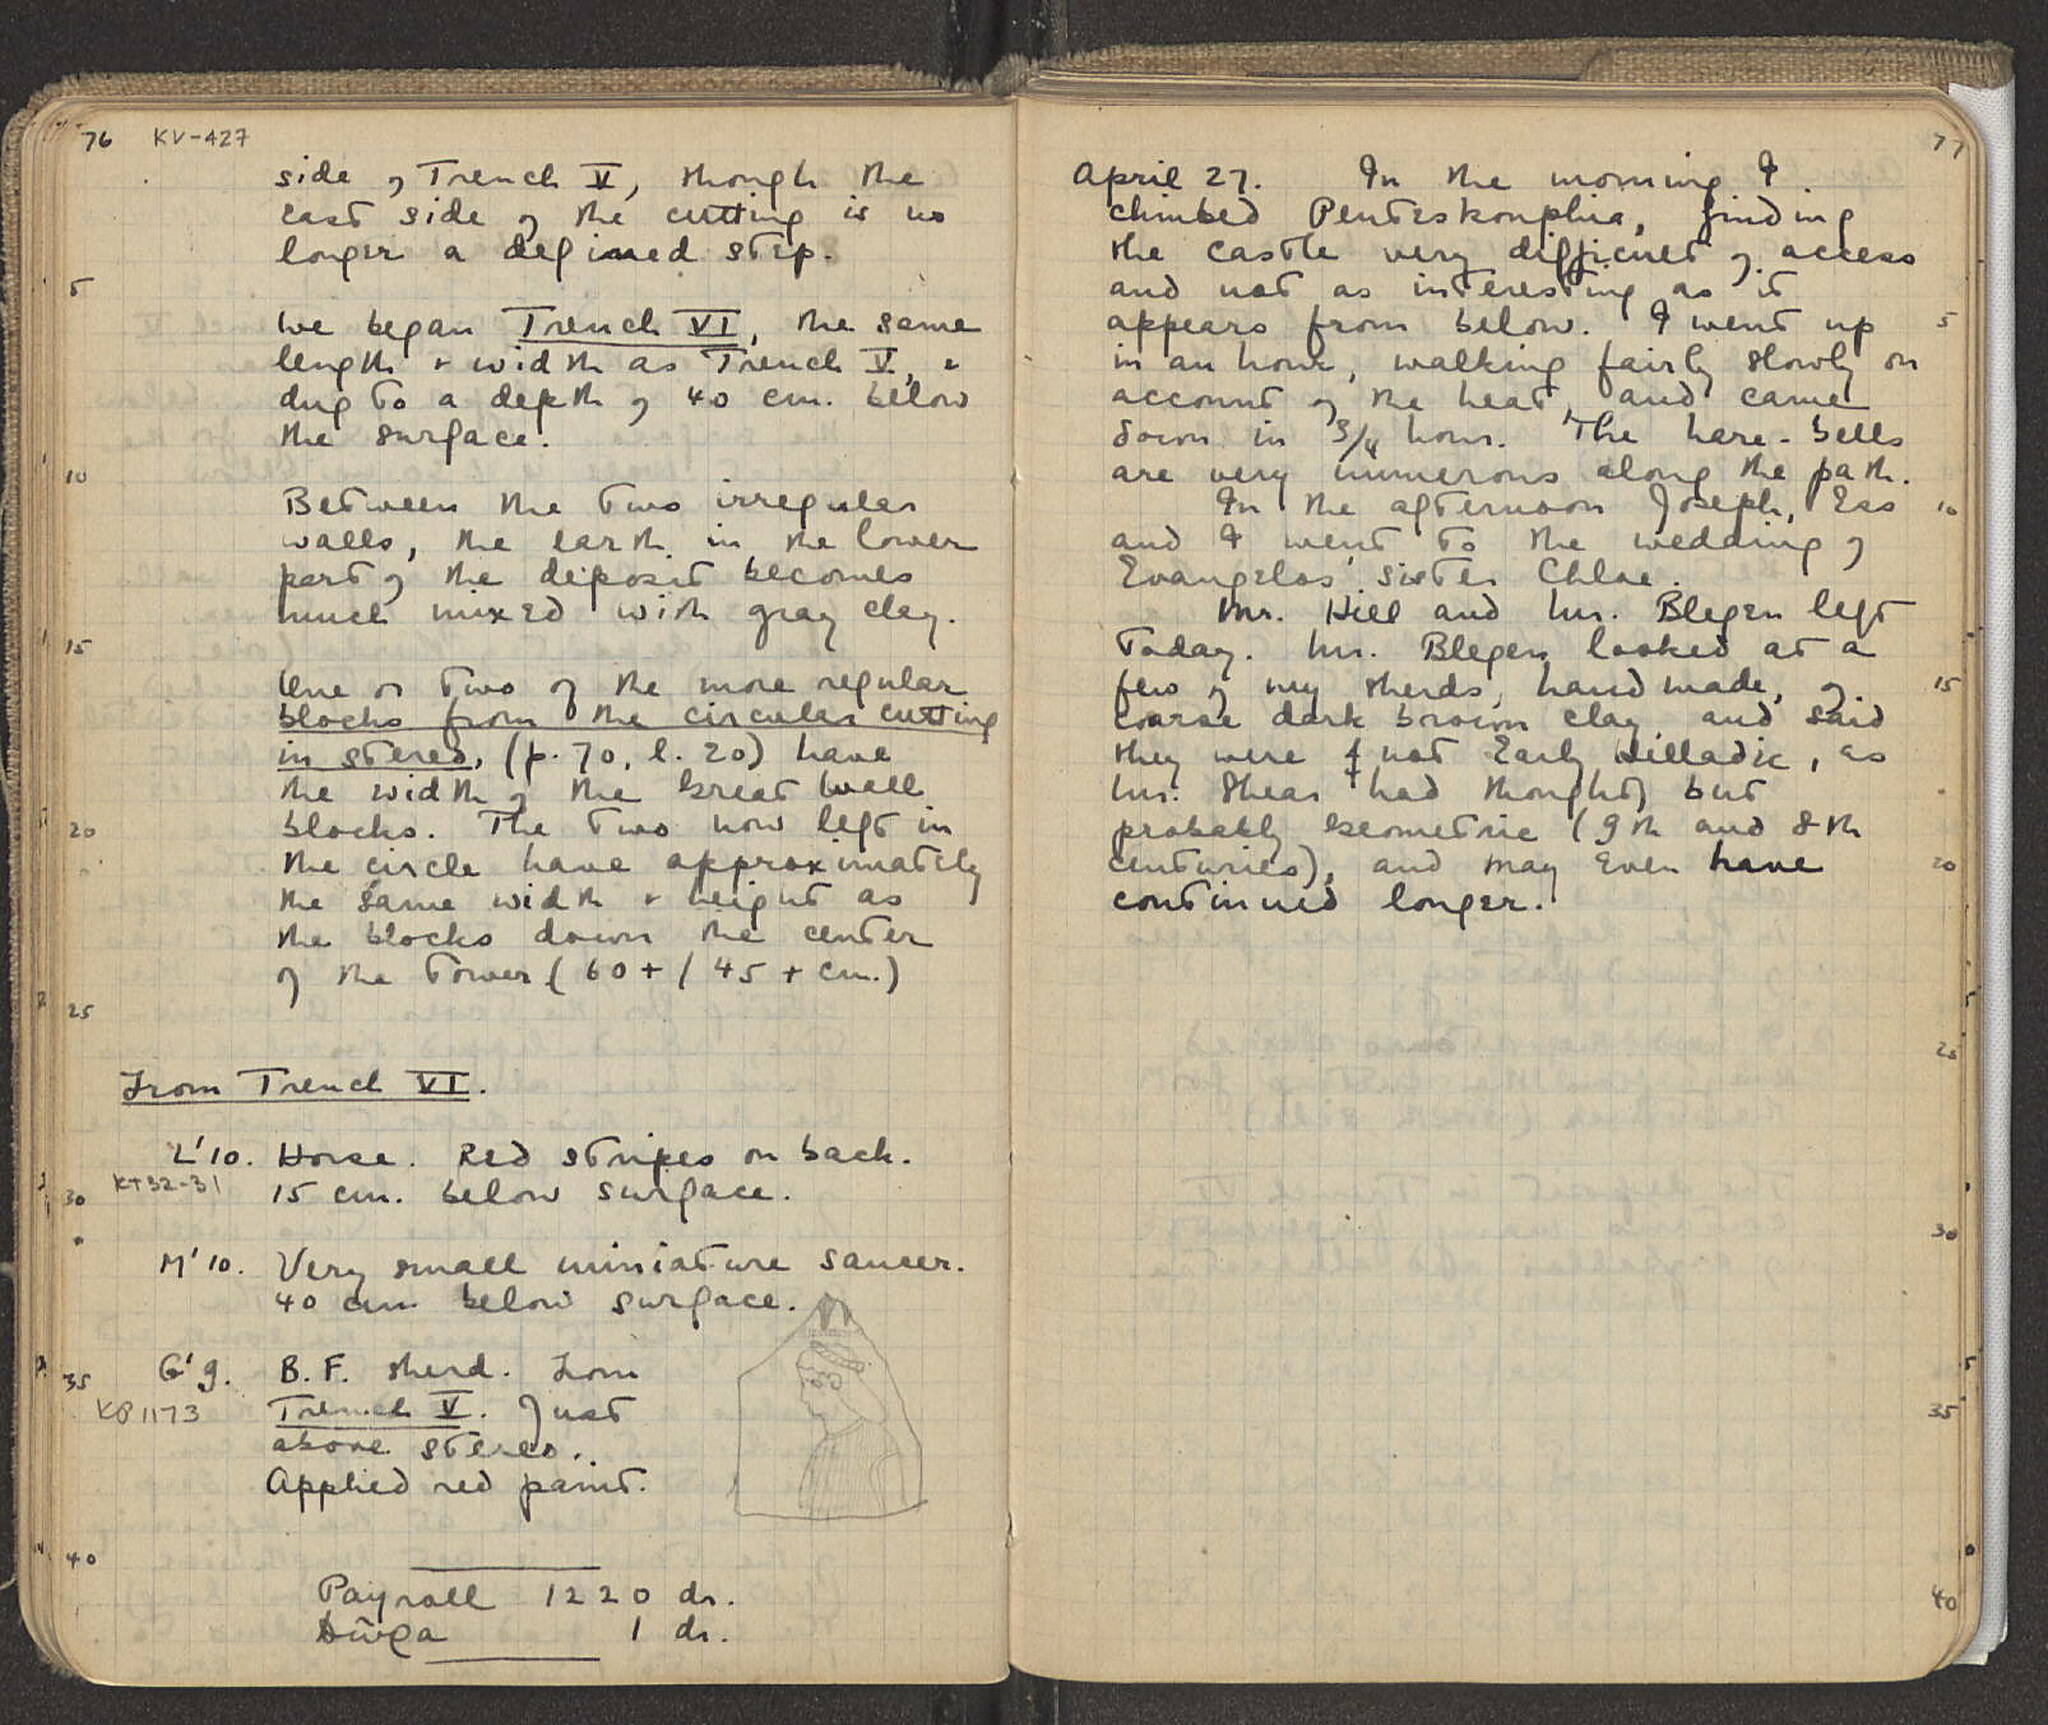 76 KV-427
side of Trench V, though the
east side of the cutting is no
longer a defined step.
5
We began Trench VI, the same
length + width as Trench V, +
dug to a depth of 40 cm. below
the surface.
10
Between the two irregular
walls, the earth in the lower
part of the deposit becomes
much mixed with gray clay.
15
One or two of the more regular
blocks from the circular cutting
in stereo, (p. 70, l. 20) have
the width of the Great Wall
20 blocks. The two now left in
the circle have approximately
the same width + height as
the blocks down the center
of the Tower (60+ / 45 + cm.)
25
From Trench VI.
L'10. Horse. Red stripes on back.
KT32-31
30 15 cm. below surface.
M'10. Very small miniature saucer.
40 cm below surface.
35 G'9. B.F. sherd. From
KP 1173 Trench V. Just
above stereo.
Applied red paint.
40
Payroll 1220 dr.
1 dr.
77
April 27. In the morning I
climbed Penteskouphia, finding
the castle very difficult of access
and not as interesting as it
appears from below. I went up 5
in an hour, walking fairly slowly on
account of the heat, and came
down in 3/4 hour. The hare-bells
are very numerous along the path.
In the afternoon Joseph, Ess 10
and I went to the wedding of
Evangelos' sister Chloe.
Mr. Hill and Mr. Blegen left
today. Mr. Blegen looked at a
few of my sherds, hand made, of 15
coarse dark brown clay and said
they were not Early Helladic, as
Mr. Shear had thought) but
probably Geometric (9th and 8th
centuries), and may even have 20
continued longer.
25
30
35
40